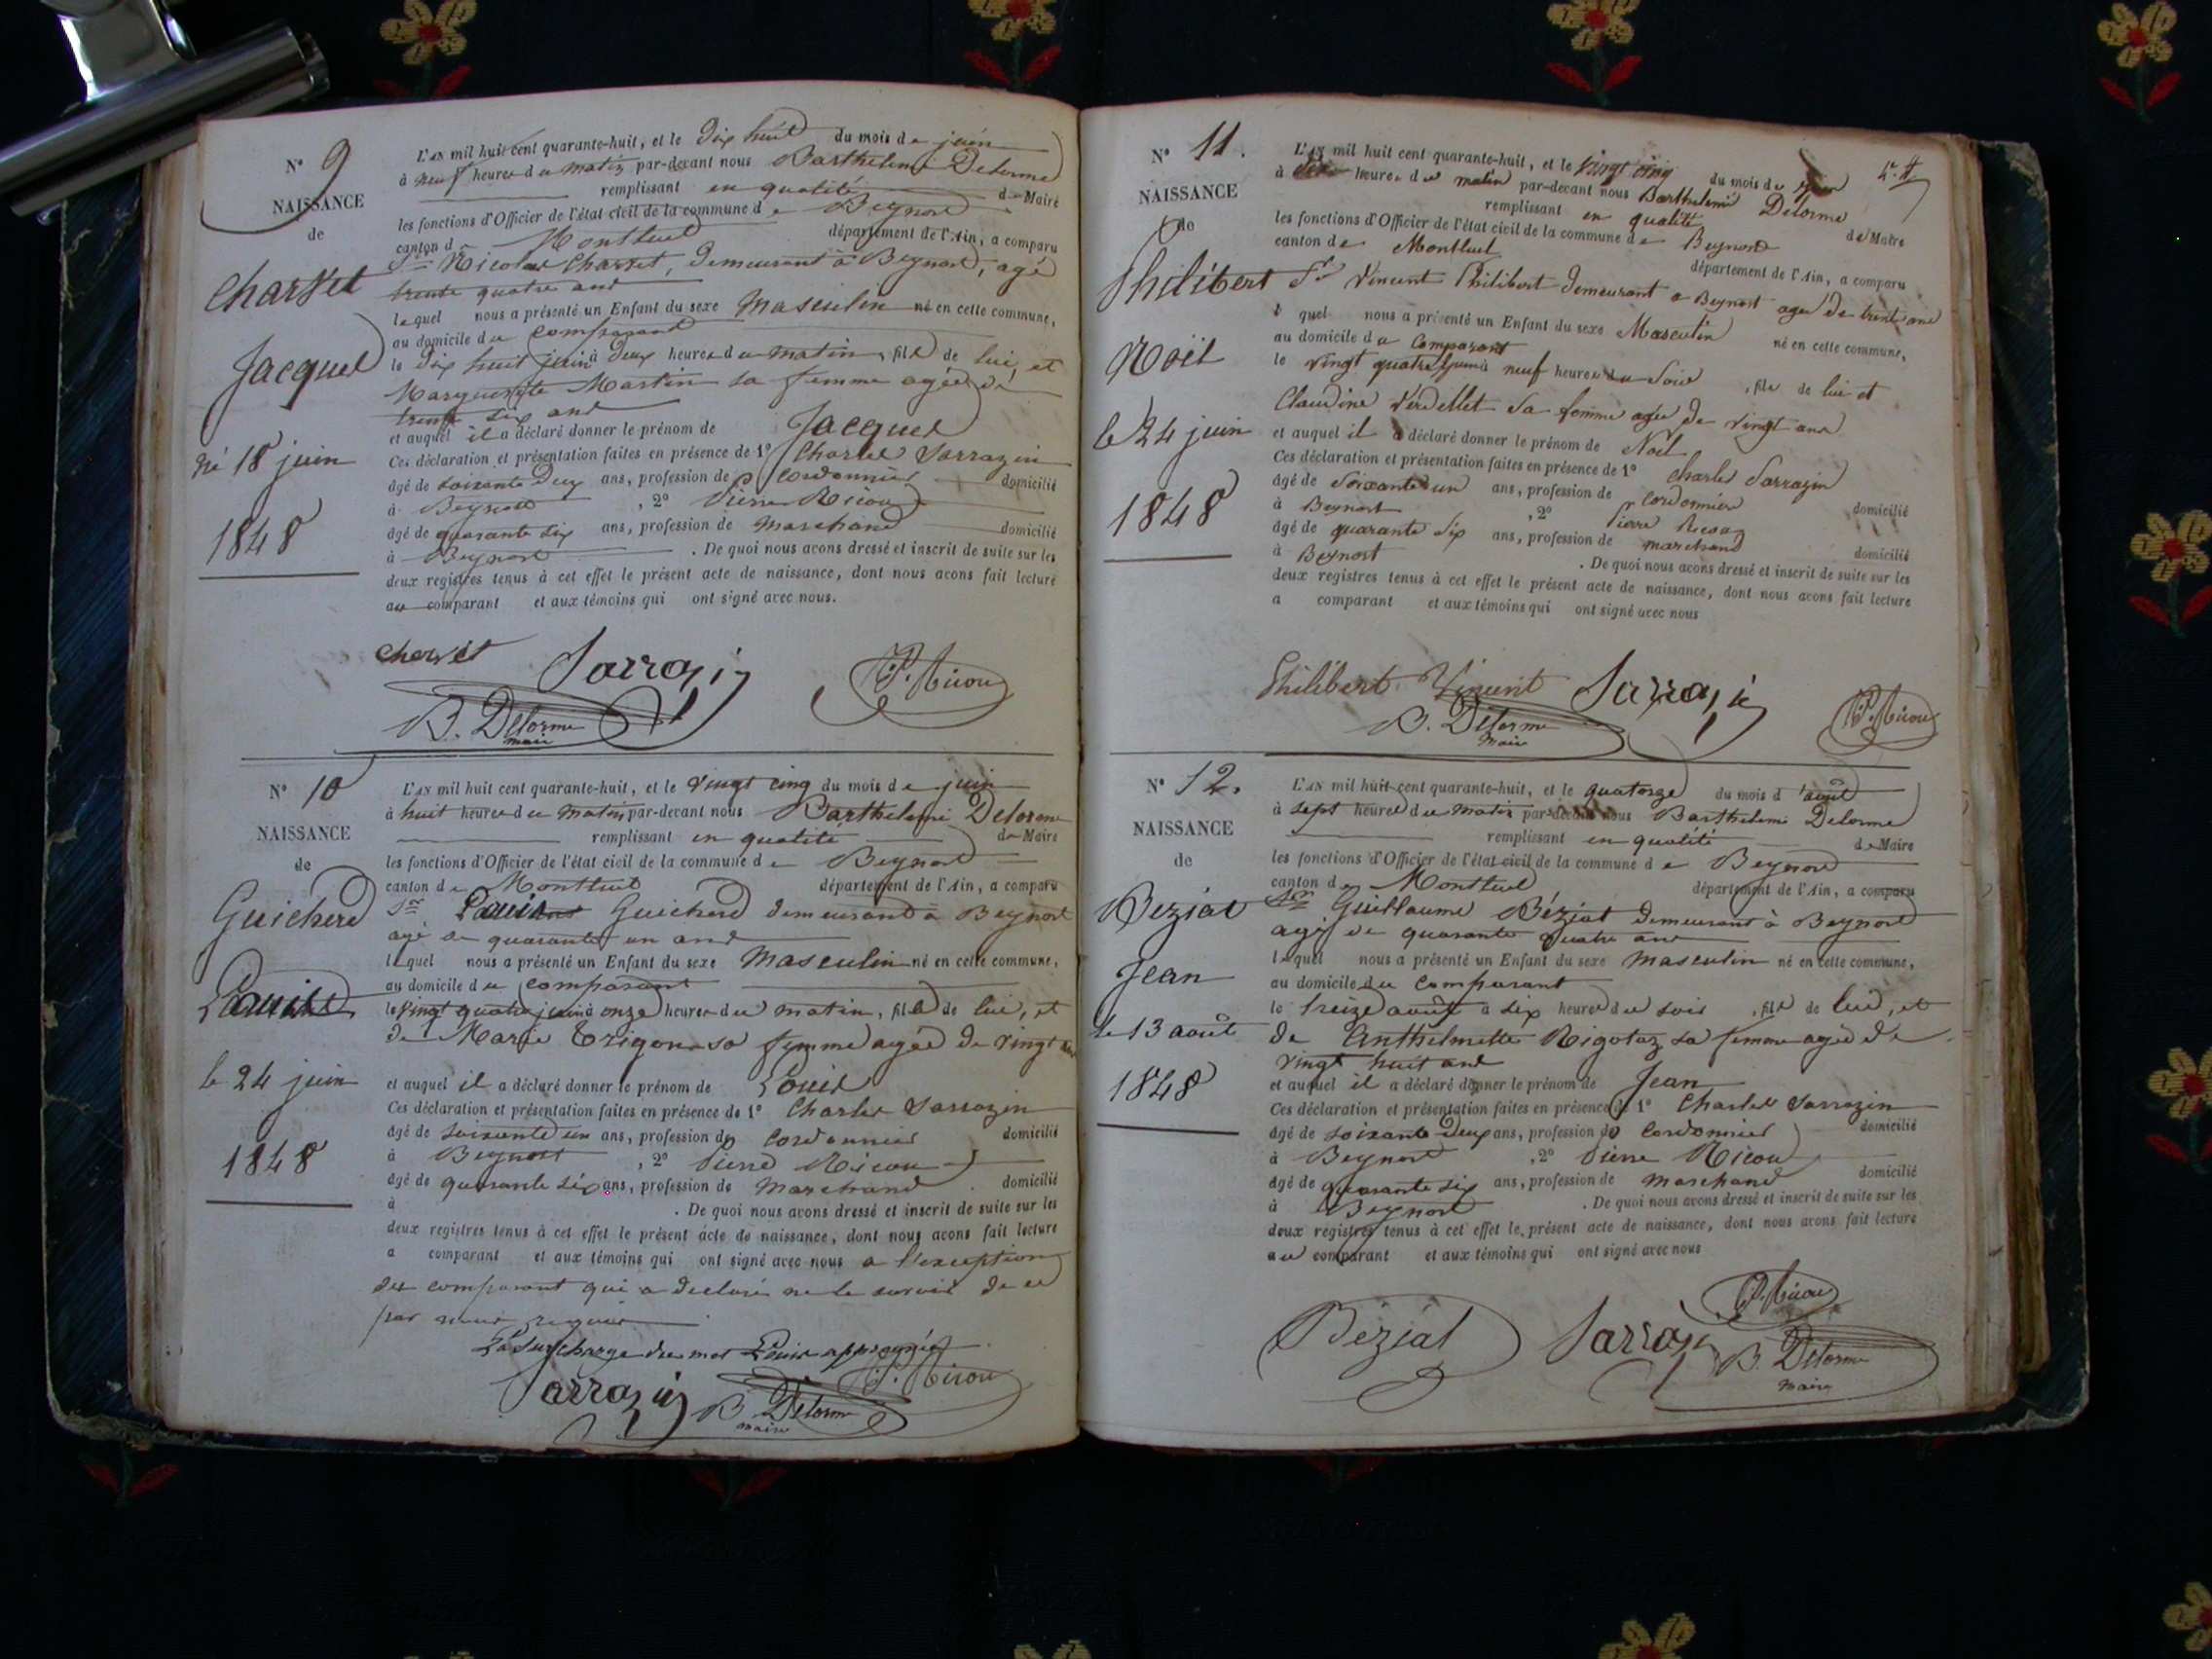 N° 9
NAISSANCE
de
Charvet
Jacques
né 18 juin
1848
L'AN mil huit cent quarante-huit, et le dix huit du mois de juin
à neuf heures du matin par-devant nous Barthelemi Delorme
remplissant en qualité de Maire
les fonctions d'Officier de l'état civil de la commune de Beynost
canton de Montluel département de l'Ain, a comparu
Sr Nicolas Charvet, demeurant à Beynost, agé
trente quatre ans
lequel nous a présenté un Enfant du sexe Masculin né en cette commune,
au domicile du comparant
le dix huit juin à deux heures du matin, fils de lui, et
Marguerite Martin sa femme agée de
trente six ans
et auquel il a déclaré donner le prénom de Jacques
Ces déclaration et présentation faites en présence de 1° Charles Sarrazin
âgé de soixante deux ans, profession de cordonnier domicilié
à Beynost, 2° Pierre Nicou
âgé de quarante six ans, profession de marchand domicilié
à Beynost. De quoi nous avons dressé et inscrit de suite sur les
deux registres tenus à cet effet le présent acte de naissance, dont nous avons fait lecture
au comparant et aux témoins qui ont signé avec nous.
Charvet Sarrazin P. Nicou
B. Delorme
maire
N° 10
NAISSANCE
de
Guicherd
Louis
le 24 juin
1848
L'AN mil huit cent quarante-huit, et le vingt cinq du mois de juin
à huit heures du matin par-devant nous Barthelemi Delorme
remplissant en qualité de Maire
les fonctions d'Officier de l'état civil de la commune de Beynost
canton de Montluel département de l'Ain, a comparu
Sr Louis Guicherd demeurant à Beynost
agé de quarante un ans
lequel nous a présenté un Enfant du sexe Masculin né en cette commune,
au domicile du comparant
le vingt quatre juin à onze heures du matin, fils de lui, et
de Marie Trigon sa femme agée de vingt
et auquel il a déclaré donner le prénom de Louis
Ces déclaration et présentation faites en présence de 1° Charles Sarrazin
âgé de soixante un ans, profession de cordonnier domicilié
à Beynost, 2° Pierre Nicou
âgé de quarante six ans, profession de Marchand domicilié
à . De quoi nous avons dressé et inscrit de suite sur les
deux registres tenus à cet effet le présent acte de naissance, dont nous avons fait lecture
a comparant et aux témoins qui ont signé avec nous a l'exception
du comparant qui a declaré ne le savoir de ce
par nous requis
La surcharge du mot Louis approuvée
Sarrazin B. Delorme P. Nicou
maire
N° 11.
NAISSANCE
de
Philibert
Noël
le 24 juin
1848
L'AN mil huit cent quarante-huit, et le vingt cinq du mois de juin
à heures du matin par-devant nous Barthelemi Delorme
remplissant en qualité de Maire
les fonctions d'Officier de l'état civil de la commune de Beynost
canton de Montluel département de l'Ain, a comparu
Sr Vincent Philibert demeurant a Beynost agé de trente ans
lequel nous a présenté un Enfant du sexe Masculin né en cette commune,
au domicile du Comparant
le vingt quatre juin à neuf heures du Soir, fils de lui et
Claudine Verdellet Sa femme agée de vingt ans
et auquel il a déclaré donner le prénom de Noël
Ces déclaration et présentation faites en présence de 1° Charles Sarrazin
âgé de Soixante un ans, profession de cordonnier domicilié
à Beynost, 2° Pierre Nicou
âgé de quarante Six ans, profession de marchand domicilié
à Beynost. De quoi nous avons dressé et inscrit de suite sur les
deux registres tenus à cet effet le présent acte de naissance, dont nous avons fait lecture
a comparant et aux témoins qui ont signé avec nous
Philibert Vincent Sarrazin
B. Delorme P. Nicou
Maire
N° 12.
NAISSANCE
de
Beziat
Jean
le 13 août
1848
L'AN mil huit cent quarante-huit, et le quatorze du mois d'août
à sept heures du matin par-devant nous Barthelemi Delorme
remplissant en qualité de Maire
les fonctions d'Officier de l'état civil de la commune de Beynost
canton de Montluel département de l'Ain, a comparu
Sr Guillaume Béziat demeurant à Beynost
agé de quarante quatre ans
lequel nous a présenté un Enfant du sexe Masculin né en cette commune,
au domicile du Comparant
le treize août à six heures du soir, fils de lui, et
de Anthelmette Rigotaz sa femme agée de
vingt huit ans
et auquel il a déclaré donner le prénom de Jean
Ces déclaration et présentation faites en présence de 1° Charles Sarrazin
âgé de soixante deux ans, profession de cordonnier domicilié
à Beynost, 2° Pierre Nicou
âgé de quarante six ans, profession de marchand domicilié
à Beynost. De quoi nous avons dressé et inscrit de suite sur les
deux registres tenus à cet effet le présent acte de naissance, dont nous avons fait lecture
au comparant et aux témoins qui ont signé avec nous
P. Nicou
Béziat Sarrazin B. Delorme
Maire